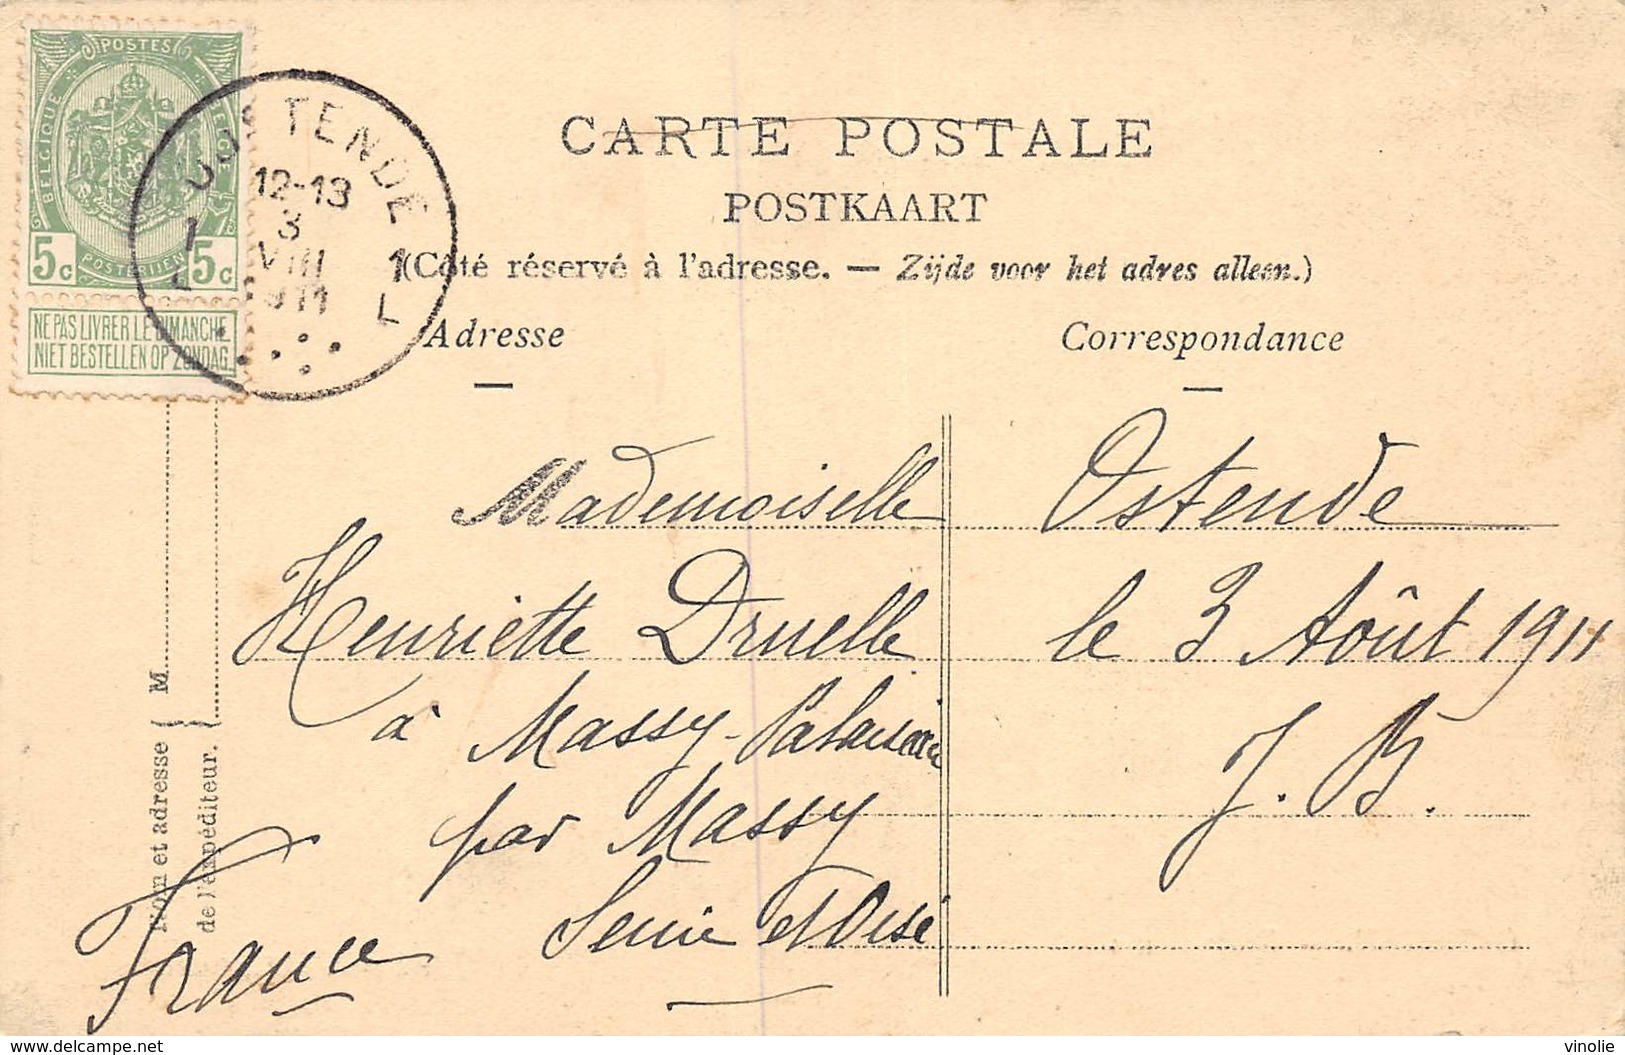 POSTES
BELGIQUE
BELGIË
5c 5c
POSTERIJEN
NE PAS LIVRER LE DIMANCHE
NIET BESTELLEN OP ZONDAG.
OOSTENDE
12-13
3
VIII
1911
1 1
L L
CARTE POSTALE
POSTKAART
(Côté réservé à l'adresse. — Zijde voor het adres alleen.)
Adresse
Correspondance
Mademoiselle
Henriette Druelle
à Massy-Palaiseau
par Massy
Seine et Oise
France
Ostende
le 3 Août 1911
J. B.
Nom et adresse { M
de l'expéditeur. }
delcampe.net
vinolie